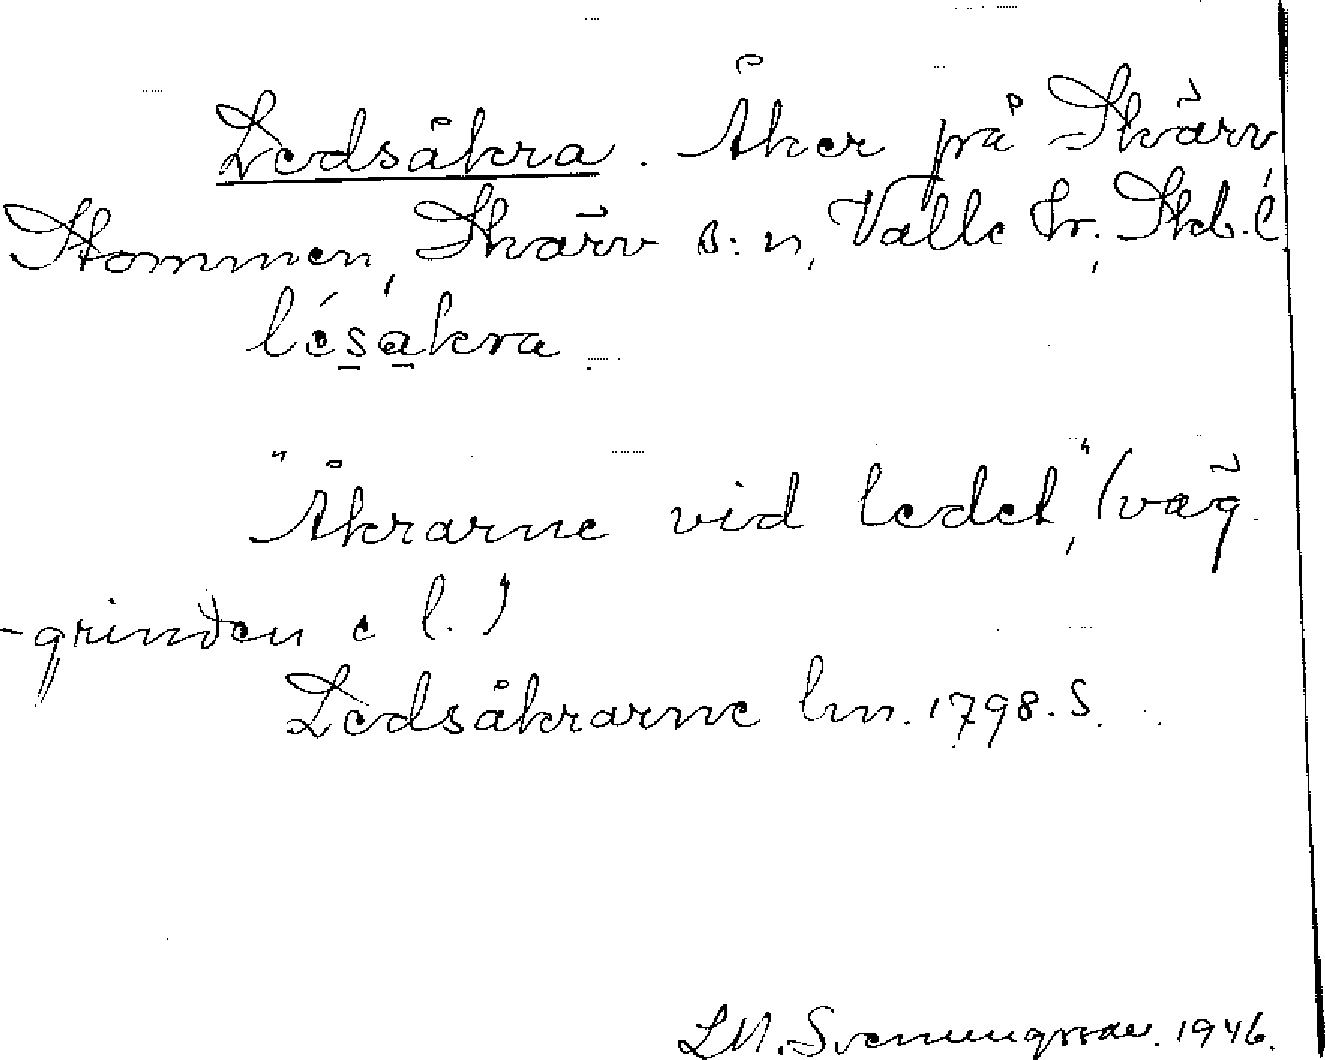 Ledsåkra. Åker på Skärv
Stommen, Skärv s:n, Valle hr, Skb. l.
lésåkra
"Åkrarne vid ledet", (väg
-grinden e l.)
Ledsåkrarne lm. 1798. S.
LM. Svenungsson. 1946.